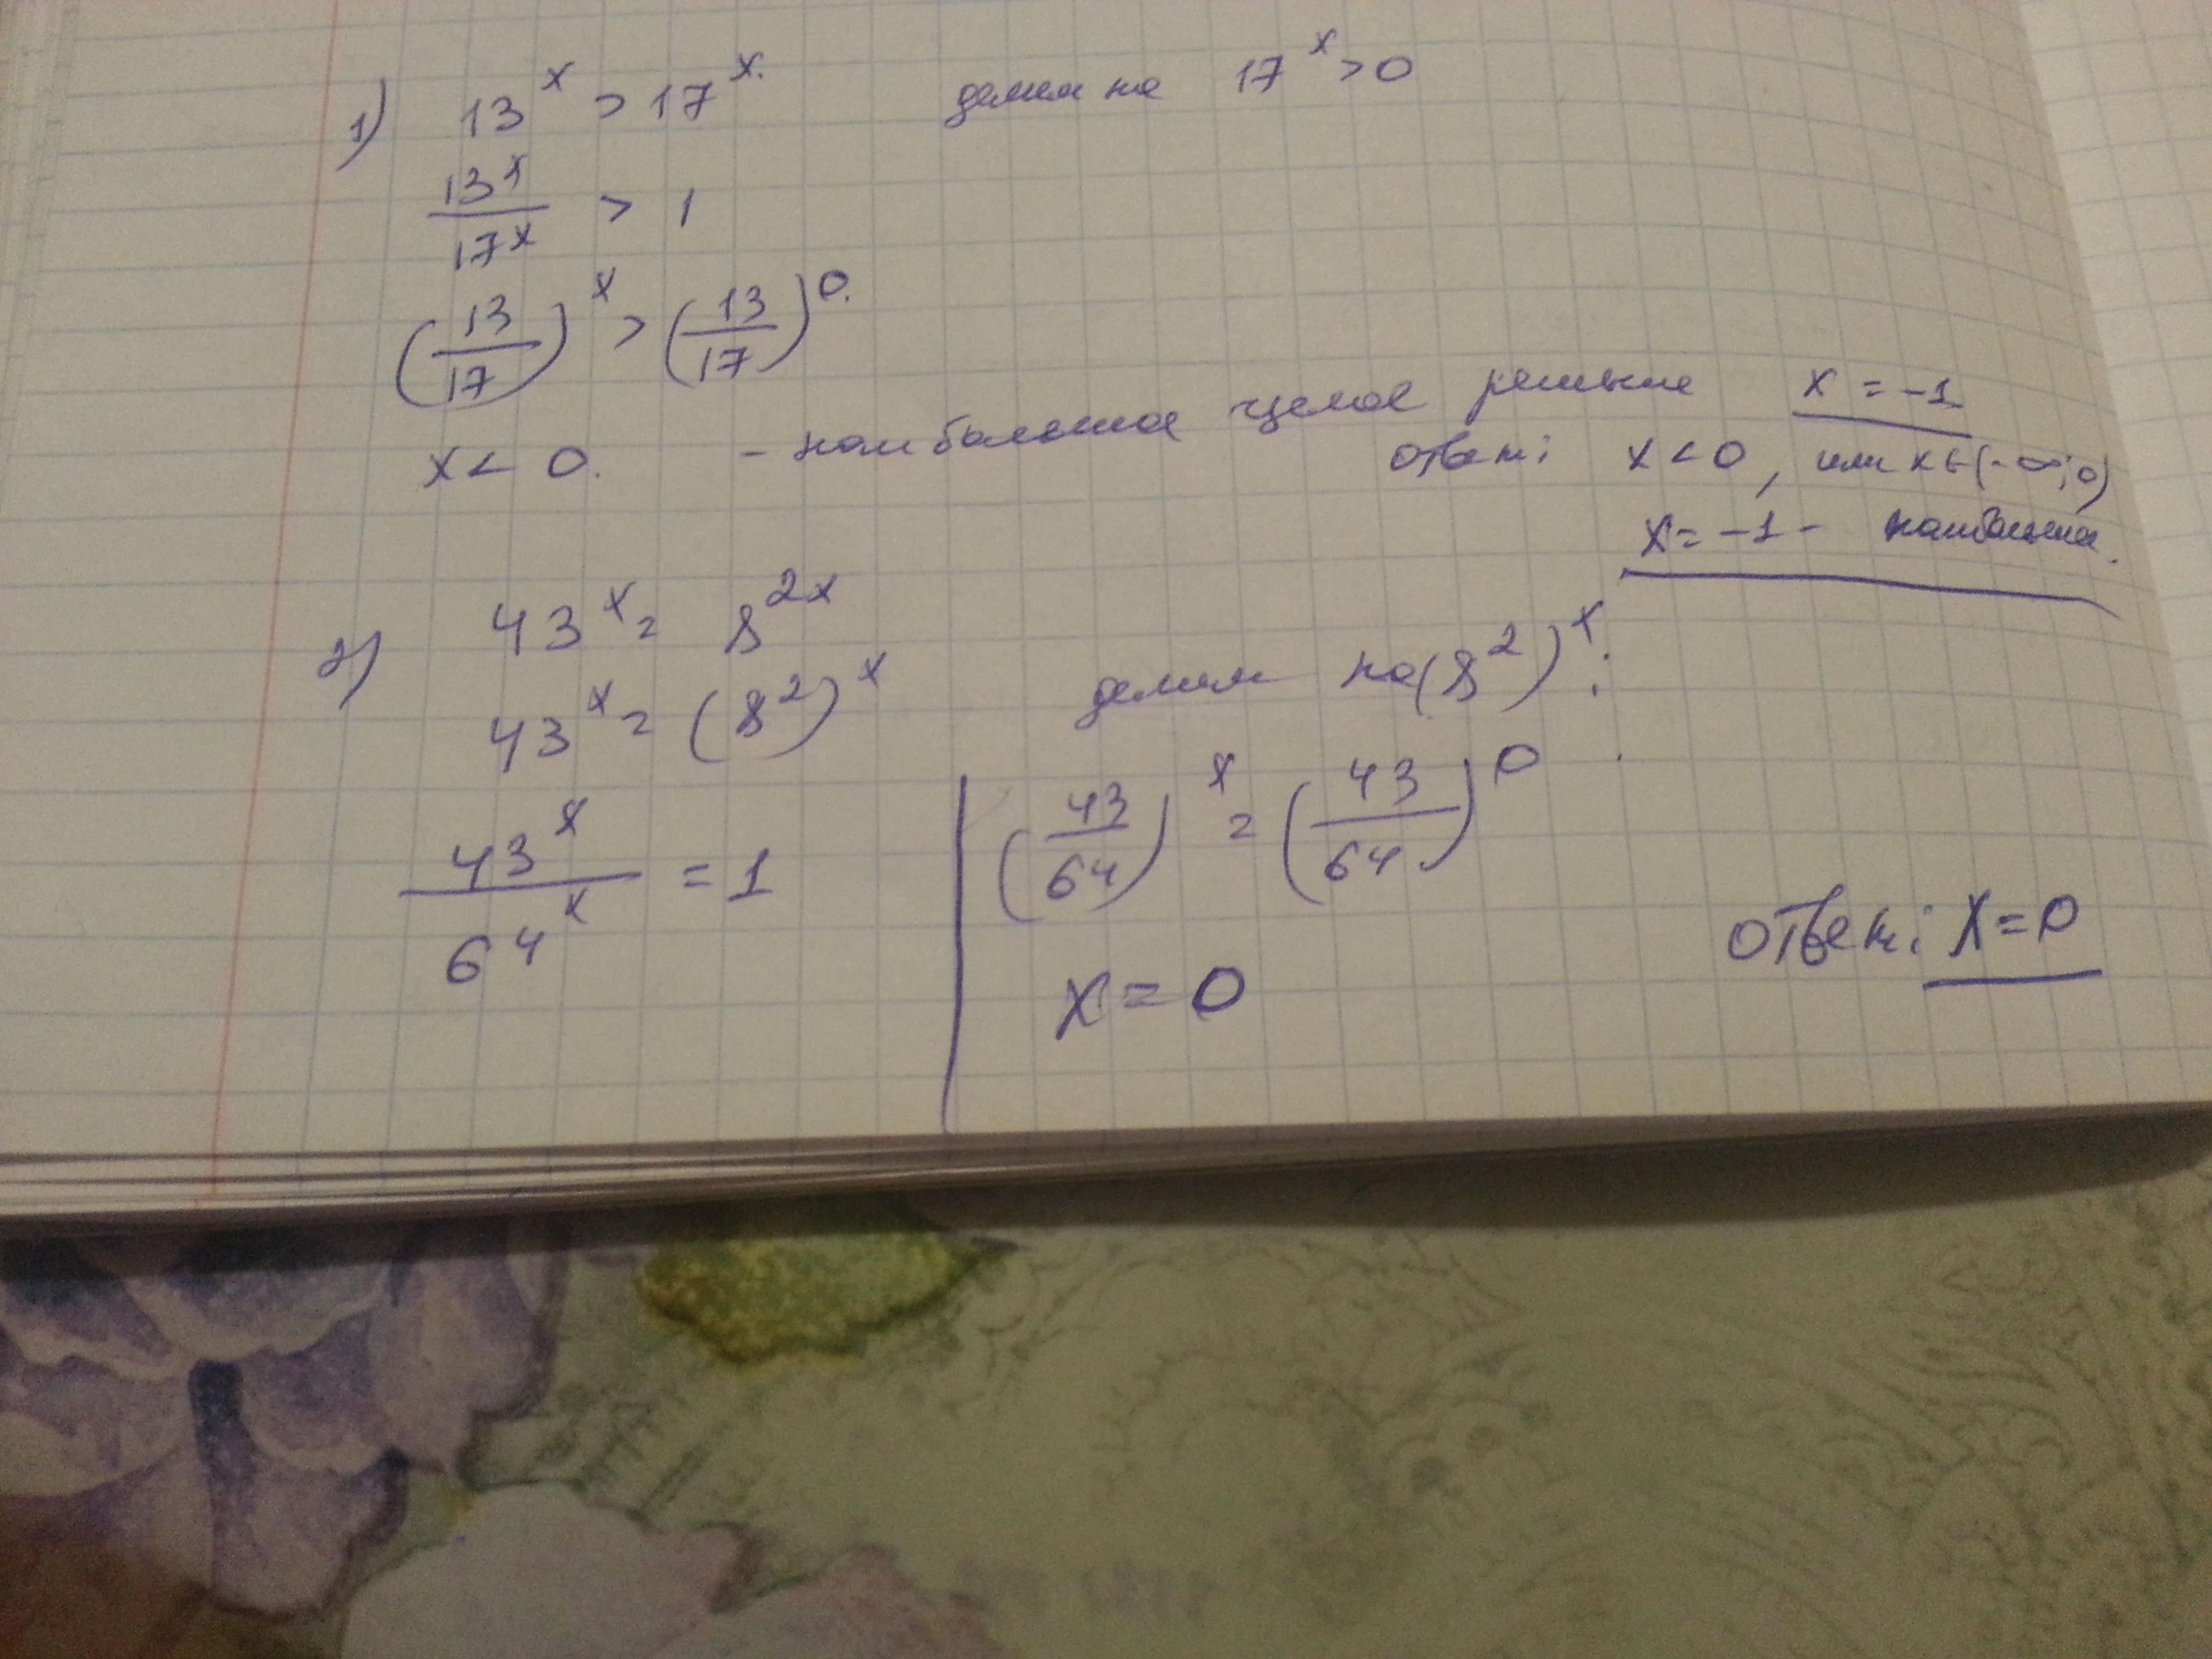 1) 13^x > 17^x. делим на 17^x > 0
13^x / 17^x > 1
(13/17)^x > (13/17)^0.
x < 0. - наибольшее целое решение x = -1
ответ: x < 0, или x ∈ (-∞; 0)
x = -1 - наибольшее.
2) 43^x = 8^2x
43^x = (8^2)^x делим на (8^2)^x:
43^x / 64^x = 1
(43/64)^x = (43/64)^0
x = 0
ответ: x = 0